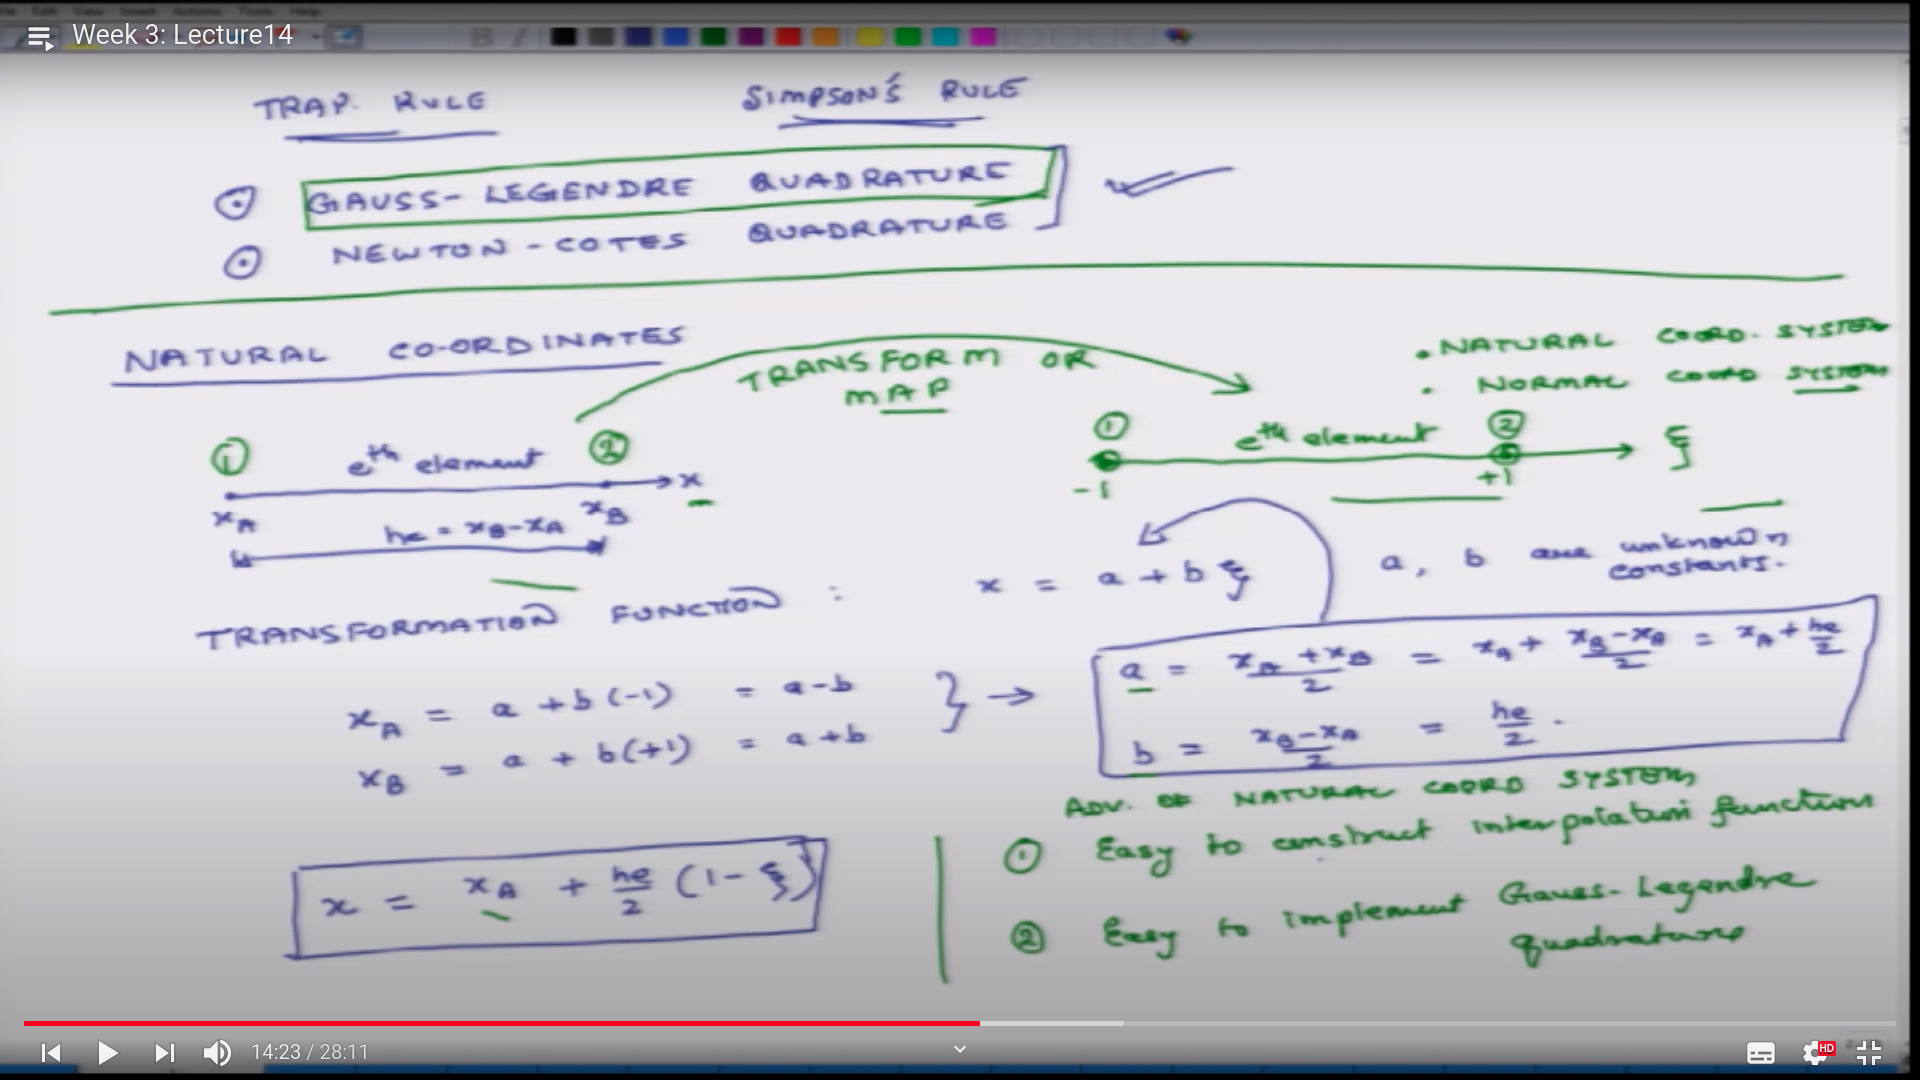 Week 3: Lecture14
TRAP. RULE
SIMPSON'S RULE
GAUSS- LEGENDRE QUADRATURE
NEWTON-COTES QUADRATURE
NATURAL CO-ORDINATES
TRANSFORM OR
MAP
• NATURAL COORD. SYSTEM
• NORMAL COORD SYSTEM
① eth element ② x
xA he = xB-xA xB
① eth element ② ξ
-1 +1
TRANSFORMATION FUNCTION : x = a + b ξ a, b are unknown
constants.
xA = a + b (-1) = a-b
xB = a + b(+1) = a+b
} →
a = xA + xB / 2 = xA + xB-xA / 2 = xA + he/2
b = xB-xA / 2 = he/2 .
x = xA + he/2 (1-ξ)
ADV. OF NATURAL COORD SYSTEM
① Easy to construct interpolation functions
② Easy to implement Gauss-Legendre
quadrature
14:23 / 28:11
HD